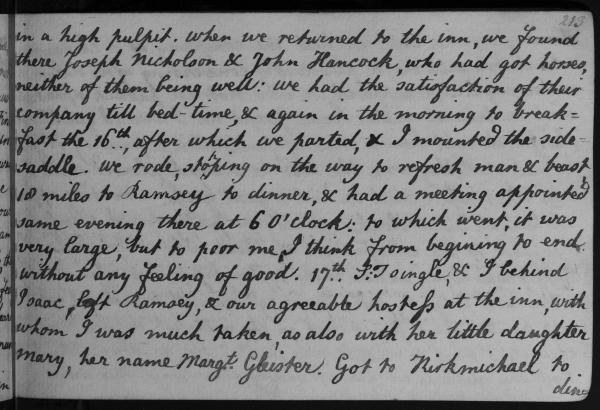 213
in a high pulpit. when we returned to the inn, we found
there Joseph Nicholson & John Hancock, who had got horses,
neither of them being well: we had the satisfaction of their
company till bed-time, & again in the morning to break=
fast the 16th, after which we parted, & I mounted the side-
saddle. we rode, stopping on the way to refresh man & beast,
18 miles to Ramsey to dinner, & had a meeting appointed
same evening there at 6 O'clock: to which went, it was
very large, but to poor me, I think from begining to end
without any feeling of good. 17th. S:T single, & I behind
Isaac, left Ramsey, & our agreeable hostess at the inn, with
whom I was much taken, as also with her little daughter
mary, her name Margt. Gleister. Got to Kirkmichael to
din=